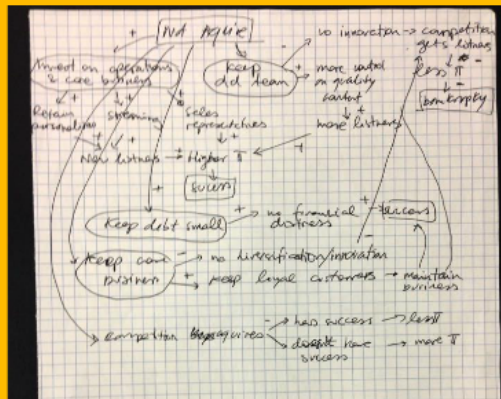 Not Aquire
no innovation → competition
gets listners
Invest on operations
& core business
Keep
old team
more control
on quality
content
less π
bankrupcy
Retain
personalities
Streaming
Sales
representatives
more listners
New listners → Higher π
sucess
Keep debt small
no financial
distress
success
Keep core
business
no diversification/innovation
keep loyal customers → maintain
business
competition aquires
has success → less π
doesn't have
success → more π